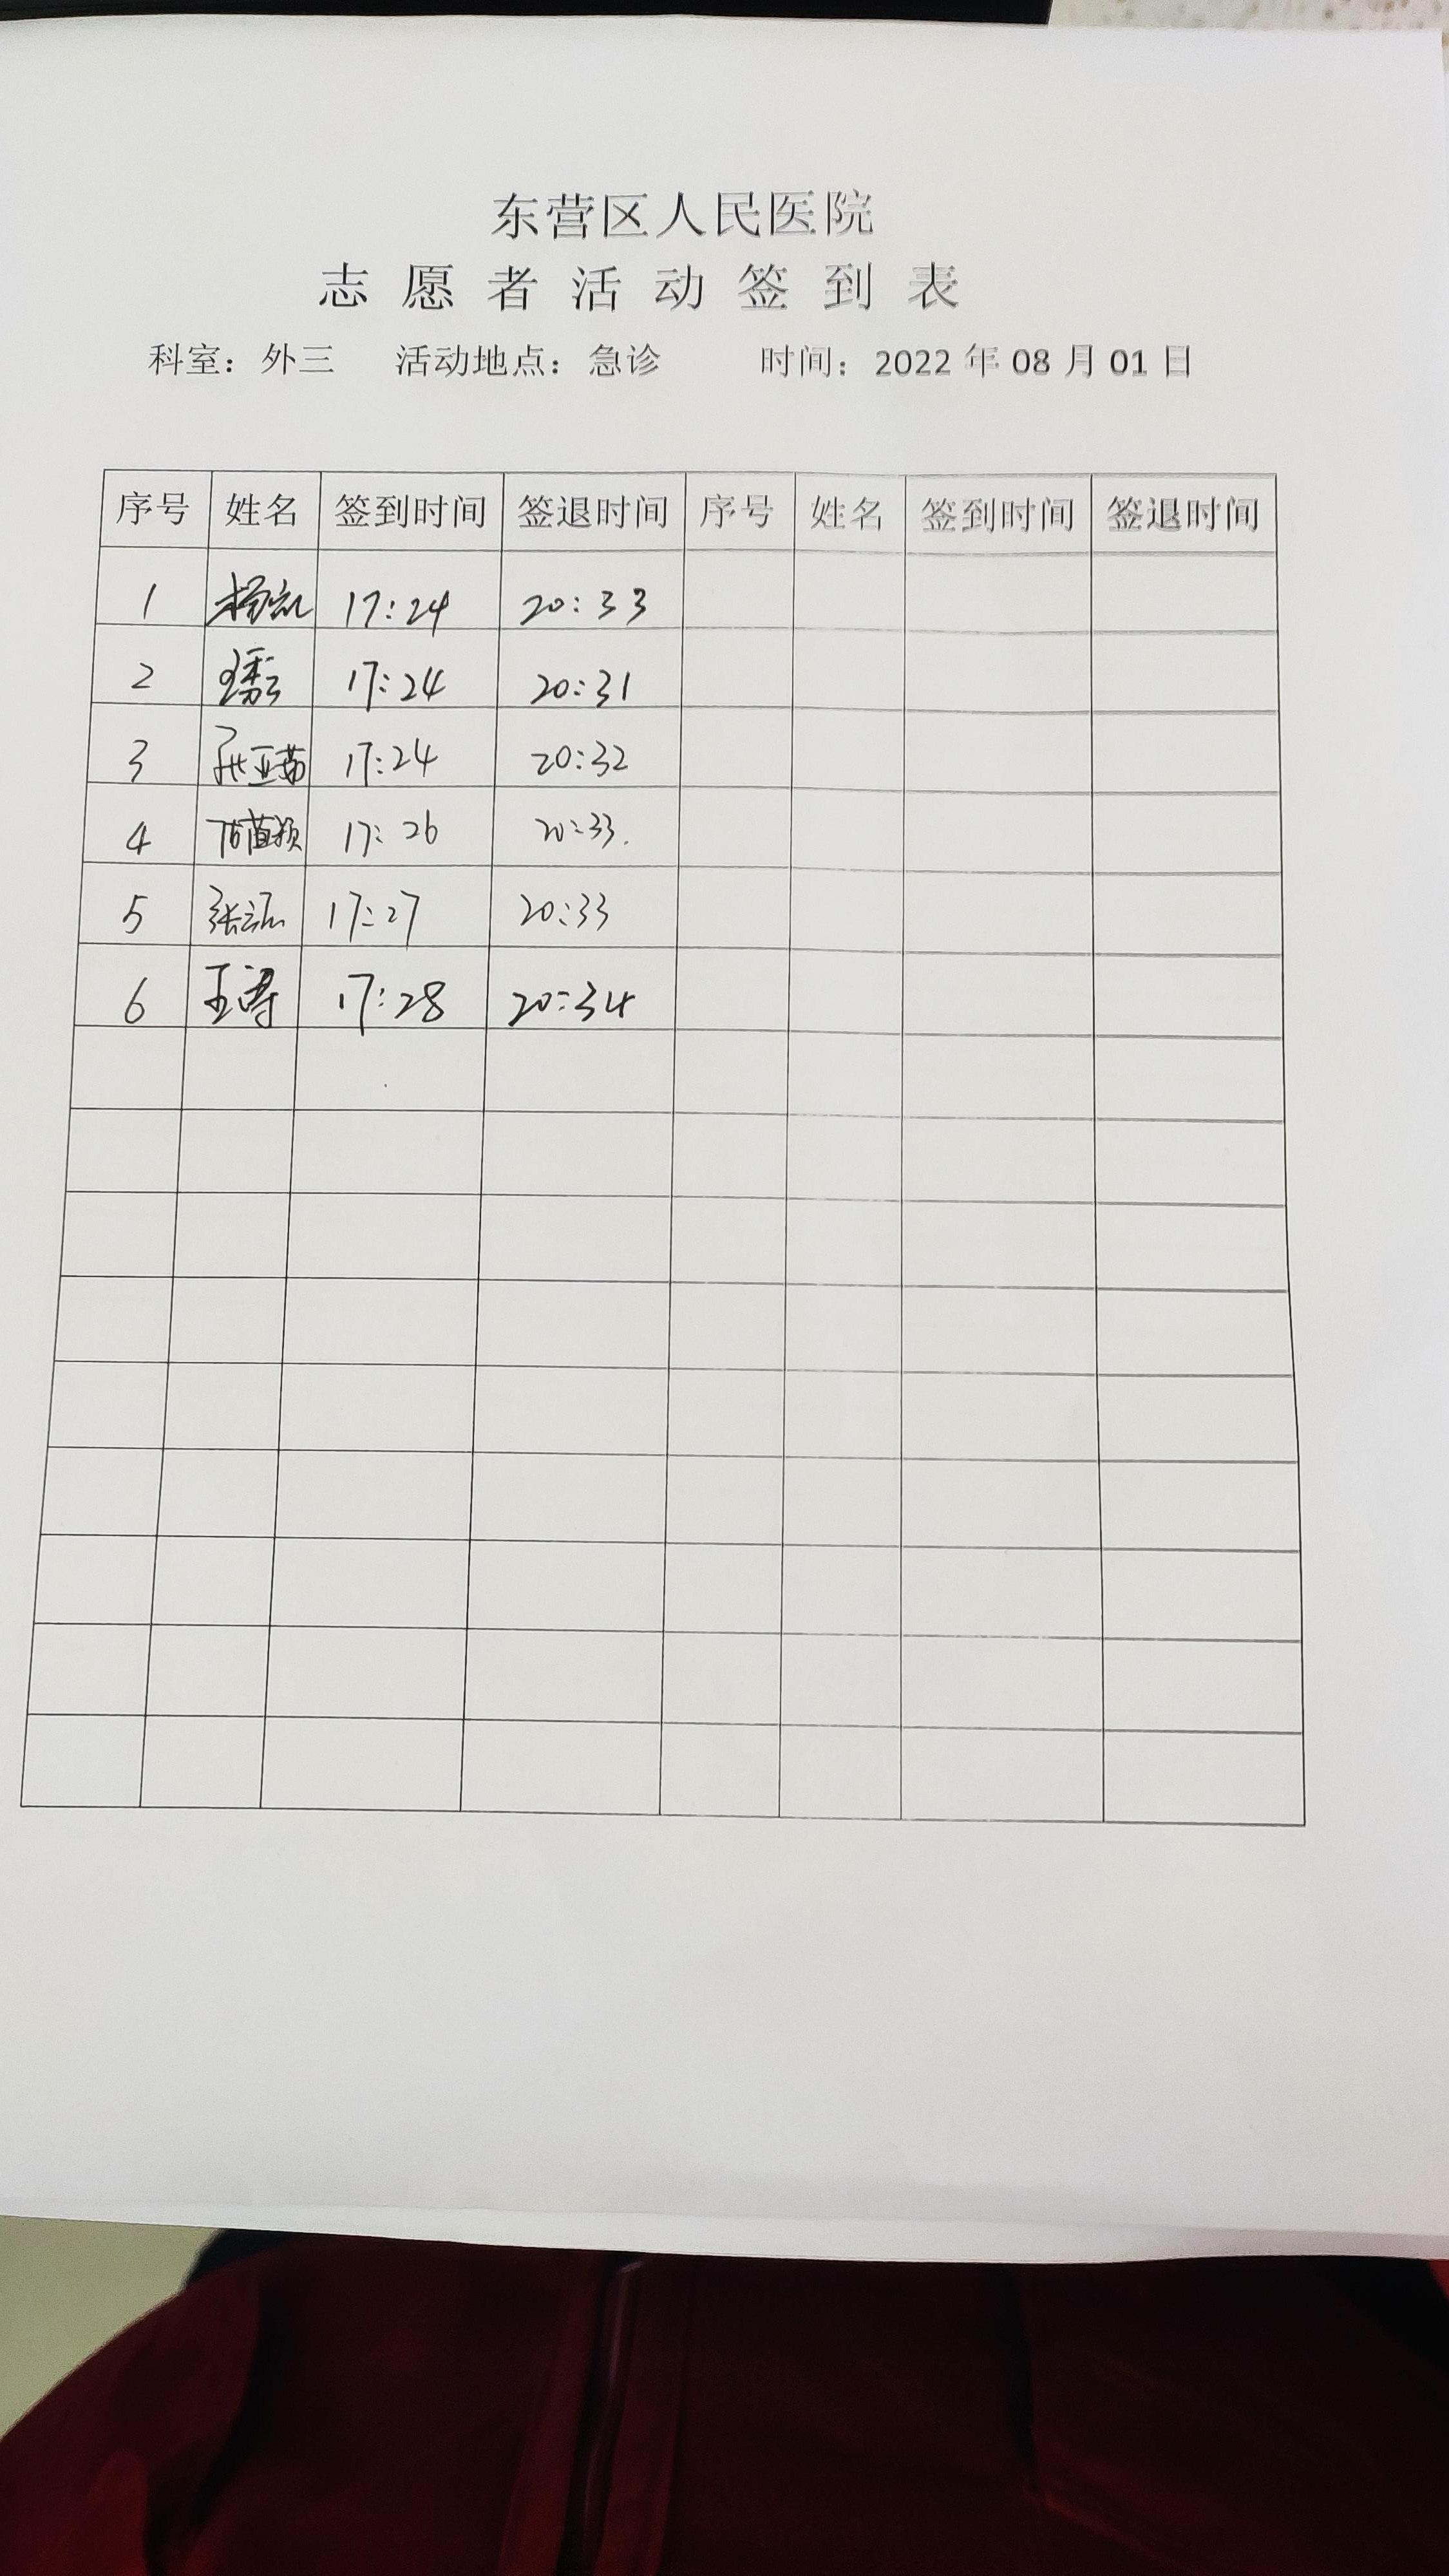 东营区人民医院
志愿者活动签到表
科室：外三 活动地点：急诊 时间：2022年08月01日
序号 姓名 签到时间 签退时间 序号 姓名 签到时间 签退时间
1 17:24 20:33
2 17:24 20:31
3 张亚茹 17:24 20:32
4 17:26 20:33.
5 17:27 20:33
6 王涛 17:28 20:34